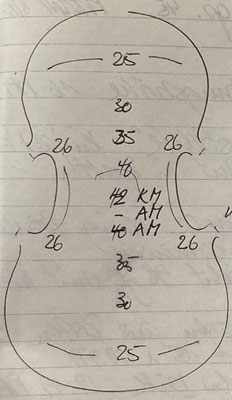 25
30
35
26 26
40
42 KM
- AM
40 AM
26 26
35
30
25